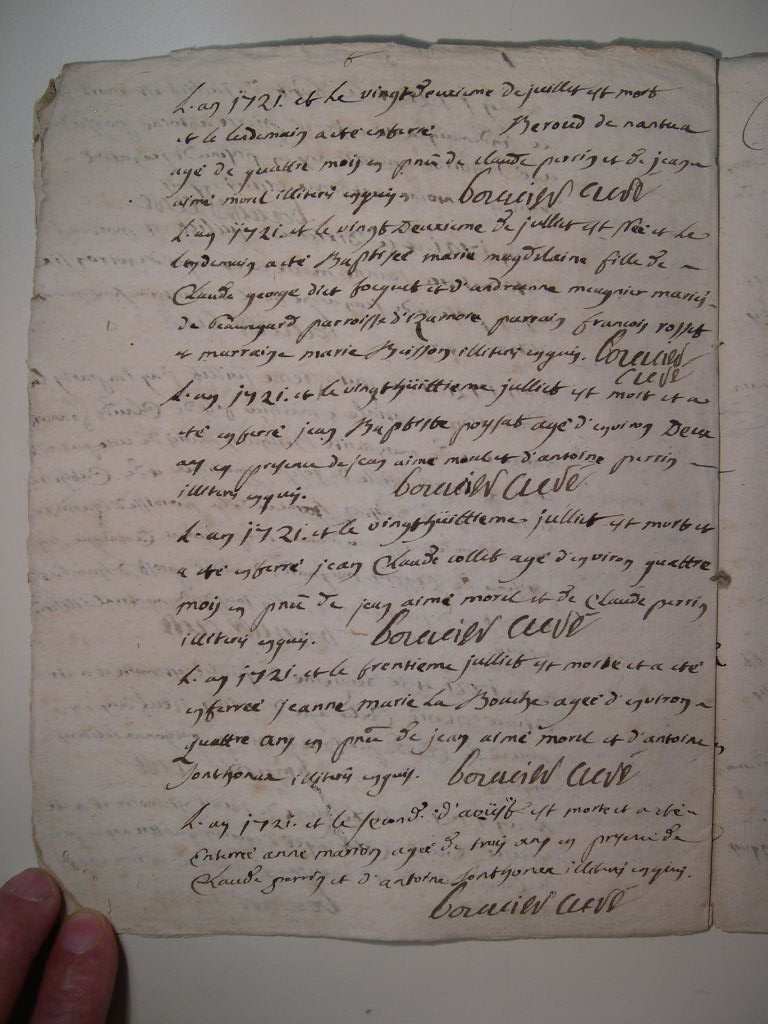 L'an 1721. et le vingt deuxieme de juillet est mort
et le lendemain a eté enterré Beroud de nantua
agé de quattre mois en pñce de claude perrin et de jean
aimé morel illiterés enquis. bouvier curé
L'an 1721. et le vingt Deuxieme de julliet est née et le
lendemain a eté Baptisée marie magdelaine fille de
Claude george dict focquet et d'andrianne meugnier mariés
de beauregard parroisse d'Izernore parrain francois rosset
et marraine marie Buisson illiterés enquis.
curé
L'an 1721. et le vingt hüittieme julliet est mort et a
eté enterré jean Baptiste poysat agé d'environ Deux
ans en presence de jean aimé morel et d'antoine perrin
illiterés enquis. curé
L'an 1721. et le vingt hüittieme julliet est mort et
a eté enterré jean Claude collet agé d'environ quattre
mois en pñce de jean aimé morel et de Claude perrin
illiterés enquis. curé
L'an 1721. et le trentieme julliet est morte et a eté
enterreé jeanne marie La Bouche ageé d'environ
quattre ans en pñce de jean aimé morel et d'antoine
illiterés enquis. curé
L'an 1721. et le second d'aoüst est morte et a eté
Enterreé anne marion ageé de trois ans en presence de
Claude perrin et d'antoine illiterés enquis.
curé